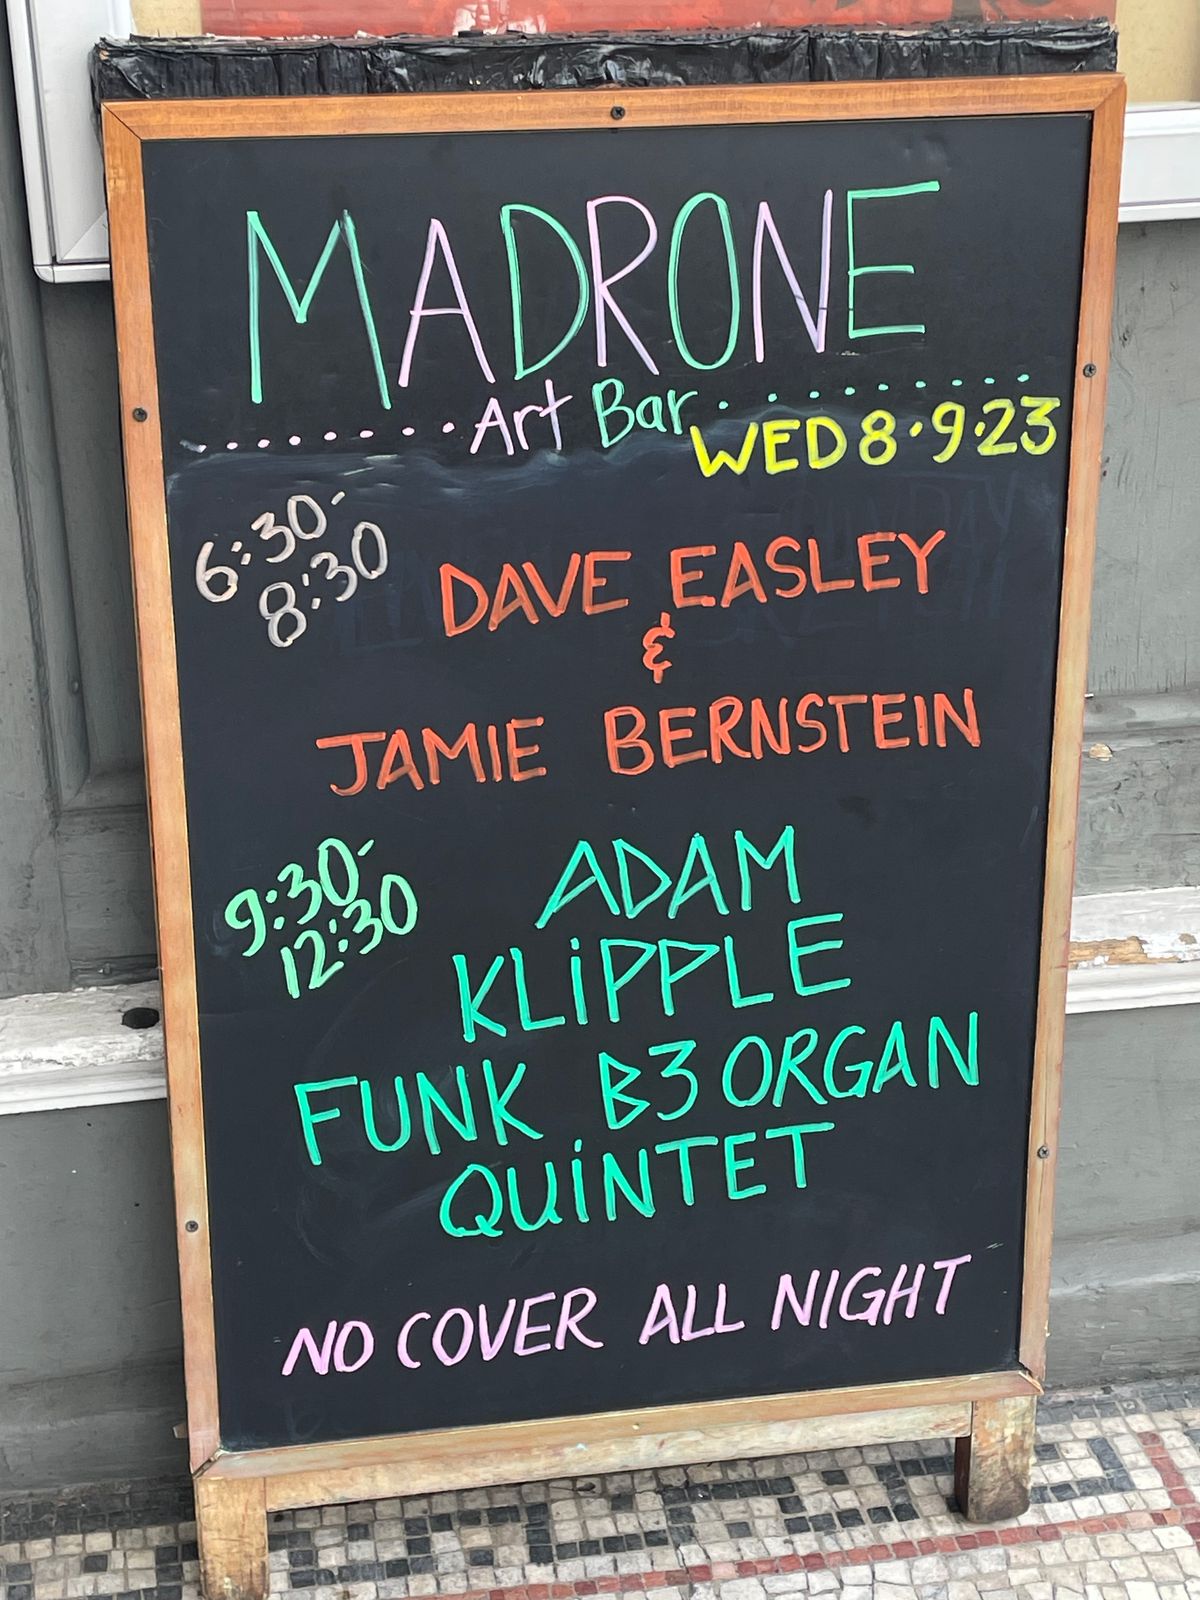 MADRONE
Art Bar
WED 8·9·23
6:30-
8:30
DAVE EASLEY
&
JAMIE BERNSTEIN
9:30-
12:30
ADAM
KLiPPLE
FUNK B3 ORGAN
QUiNTET
NO COVER ALL NIGHT